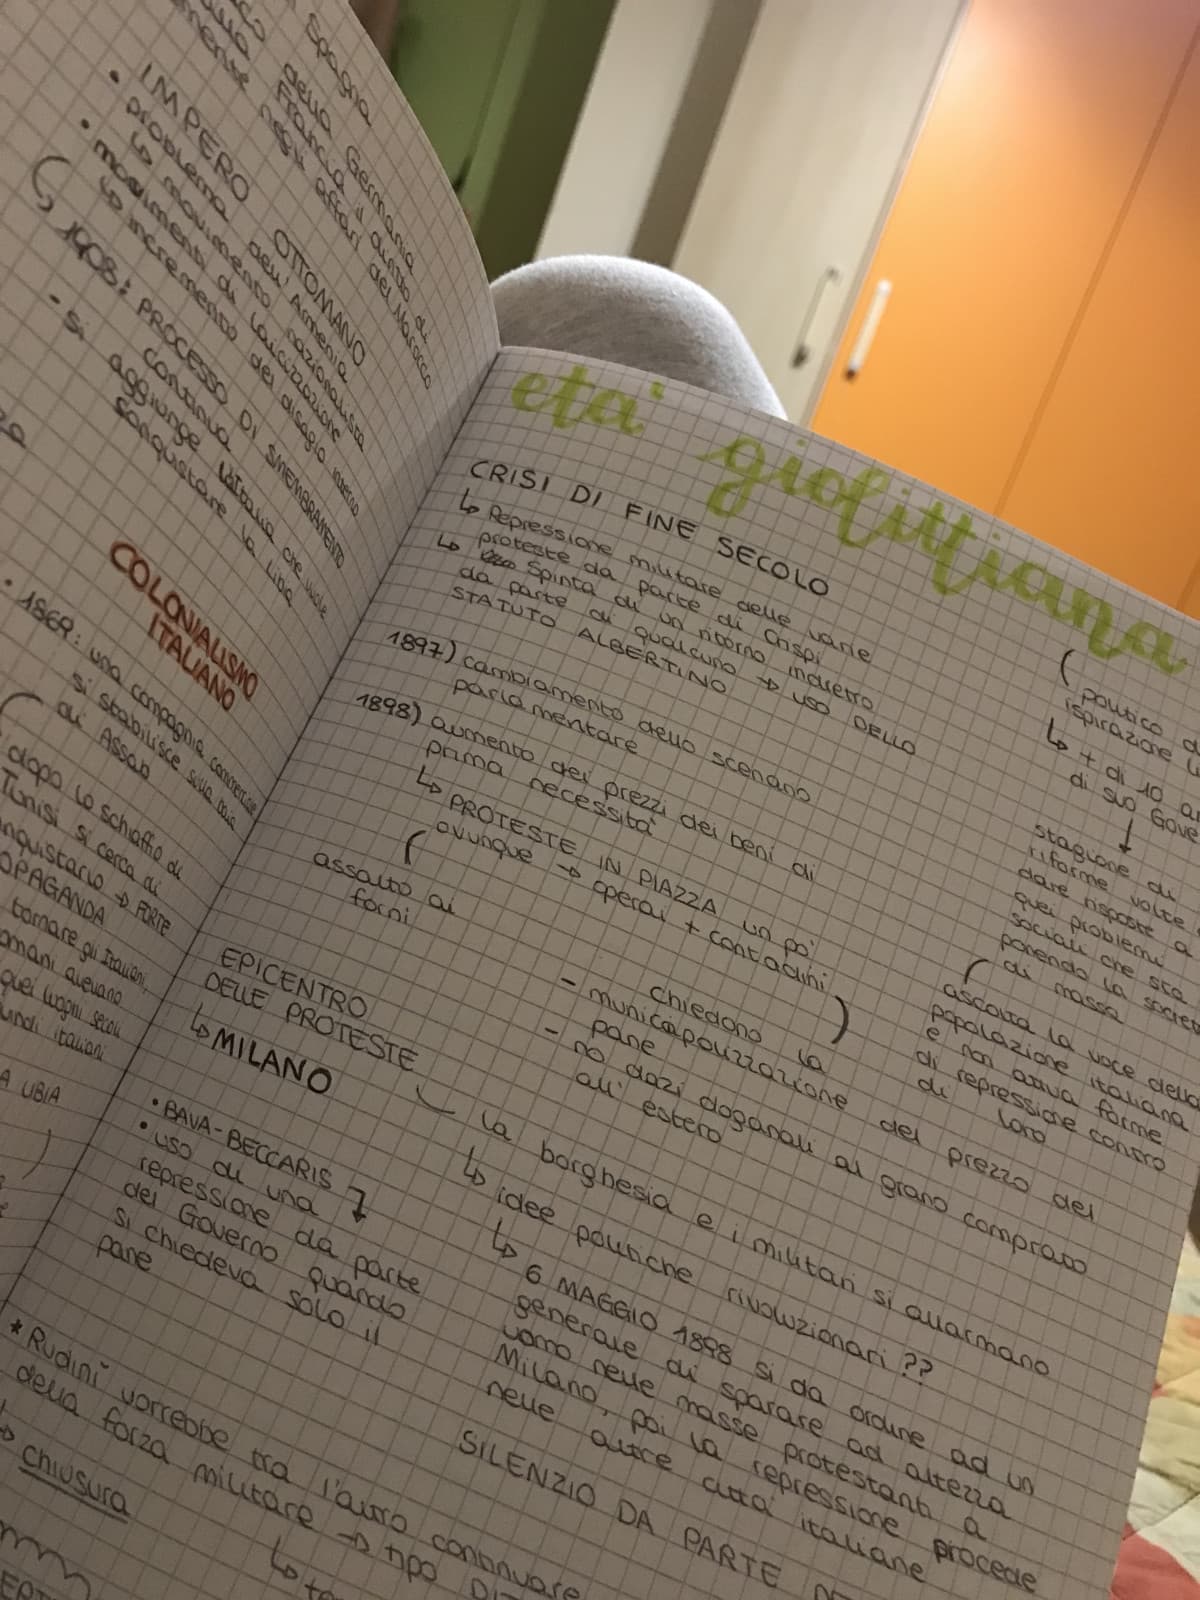 Spagna
della Germania
Francia il diritto di
negli affari del Marocco
IMPERO OTTOMANO
• problema dell'Armenia
↳ movimento nazionalista
• movimenti di laicizzazione
↳ incremento del disagio interno
↳ 1908: PROCESSO DI SMEMBRAMENTO
continua
- si aggiunge l'Italia che vuole
conquistare la Libia
COLONIALISMO
ITALIANO
• 1869: una compagnia commerciale
si stabilisce sulla baia
di Assab
dopo lo schiaffo di
Tunisi si cerca di
→ FORTE
tornare gli Italiani
avevano
quei luoghi secoli
italiani
età giolittiana
CRISI DI FINE SECOLO
↳ Repressione militare delle varie
proteste da parte di Crispi
↳ Spinta di un ritorno indietro
da parte di qualcuno → uso DELLO
STATUTO ALBERTINO
1897) cambiamento dello scenario
parlamentare
1898) aumento dei prezzi dei beni di
prima necessità
↳ PROTESTE IN PIAZZA un po'
ovunque → operai + contadini
assalto ai
forni
chiedono la
- municipalizzazione del prezzo del
pane
- no dazi doganali al grano comprato
all'estero
EPICENTRO
DELLE PROTESTE
↳ MILANO
la borghesia e i militari si allarmano
↳ idee politiche rivoluzionari ??
↳ 6 MAGGIO 1898 si da ordine ad un
generale di sparare ad altezza
uomo nelle masse protestanti a
Milano, poi la repressione procede
nelle altre città italiane
• BAVA-BECCARIS
• uso di una
repressione da parte
del Governo quando
si chiedeva solo il
pane
SILENZIO DA PARTE
* Rudinì vorrebbe tra l'altro continuare
della forza militare → tipo
↳ chiusura
(politico
ispirazione
↳ + di 10
di suo
stagione di
riforme volte
dare risposte a
quei problemi
sociali che sta
ponendo la
di massa
ascolta la voce della
popolazione italiana
e non attua forme
di repressione contro
di loro